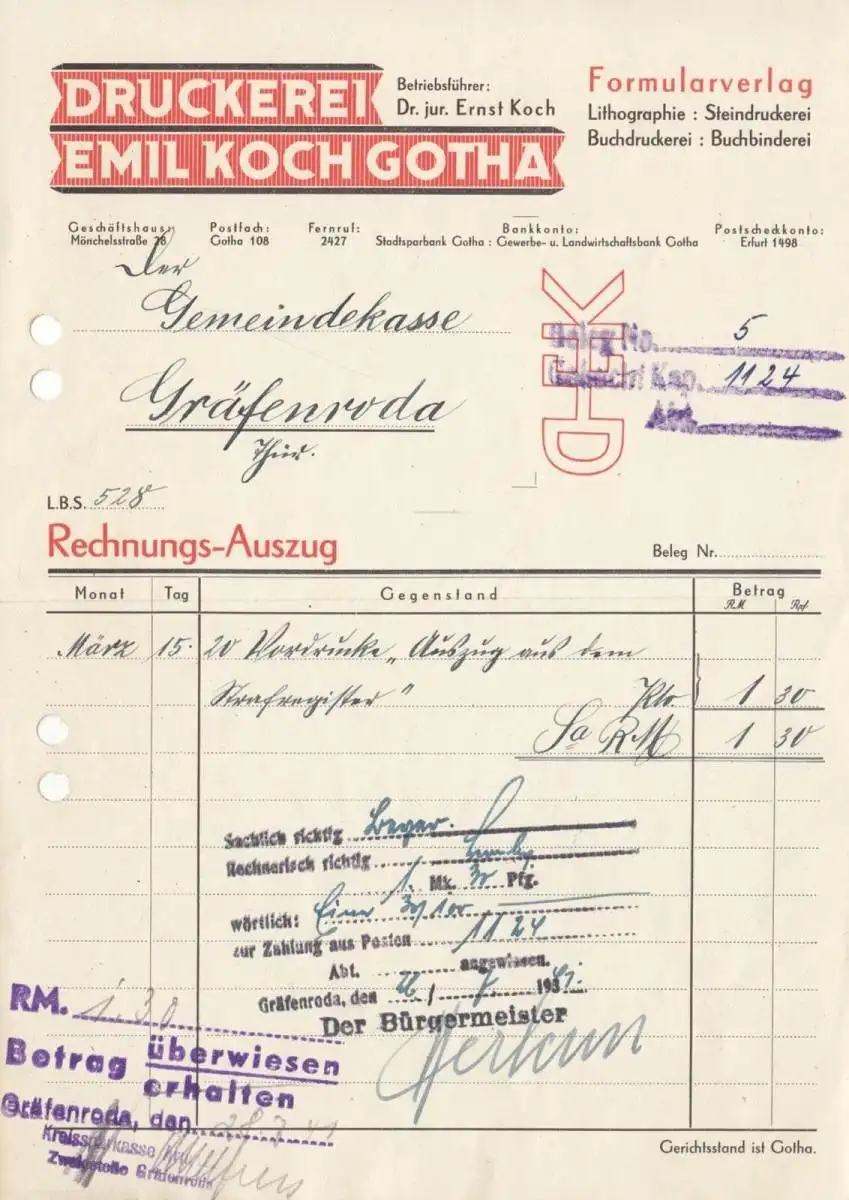 DRUCKEREI
EMIL KOCH GOTHA
Betriebsführer:
Dr. jur. Ernst Koch
Formularverlag
Lithographie : Steindruckerei
Buchdruckerei : Buchbinderei
Geschäftshaus:
Mönchelsstraße 28
Postfach:
Gotha 108
Fernruf:
2427
Bankkonto:
Stadtsparbank Gotha : Gewerbe- u. Landwirtschaftsbank Gotha
Postscheckkonto:
Erfurt 1498
Der
Gemeindekasse
Gräfenroda
Thür.
DHEK
Beleg No. 5
Kap. 1124
Abt.
L.B.S. 528
Rechnungs-Auszug
Beleg Nr.
Monat Tag Gegenstand Betrag
RM Rpf
März 15. 20 Vordrucke „Auszug aus dem
Strafregister" 1 30
Sa RM 1 30
Sachlich richtig Beyer.
Rechnerisch richtig
1. Mk. 30 Pfg.
wörtlich: Eine 30/100
zur Zahlung aus Posten 1124
Abt. angewiesen.
Gräfenroda, den 22/7. 1941.
Der Bürgermeister
RM. 1.30
Betrag überwiesen
erhalten
Gräfenroda, den 28.7.41
Kreissparkasse
Zweigstelle Gräfenroda
Gerichtsstand ist Gotha.